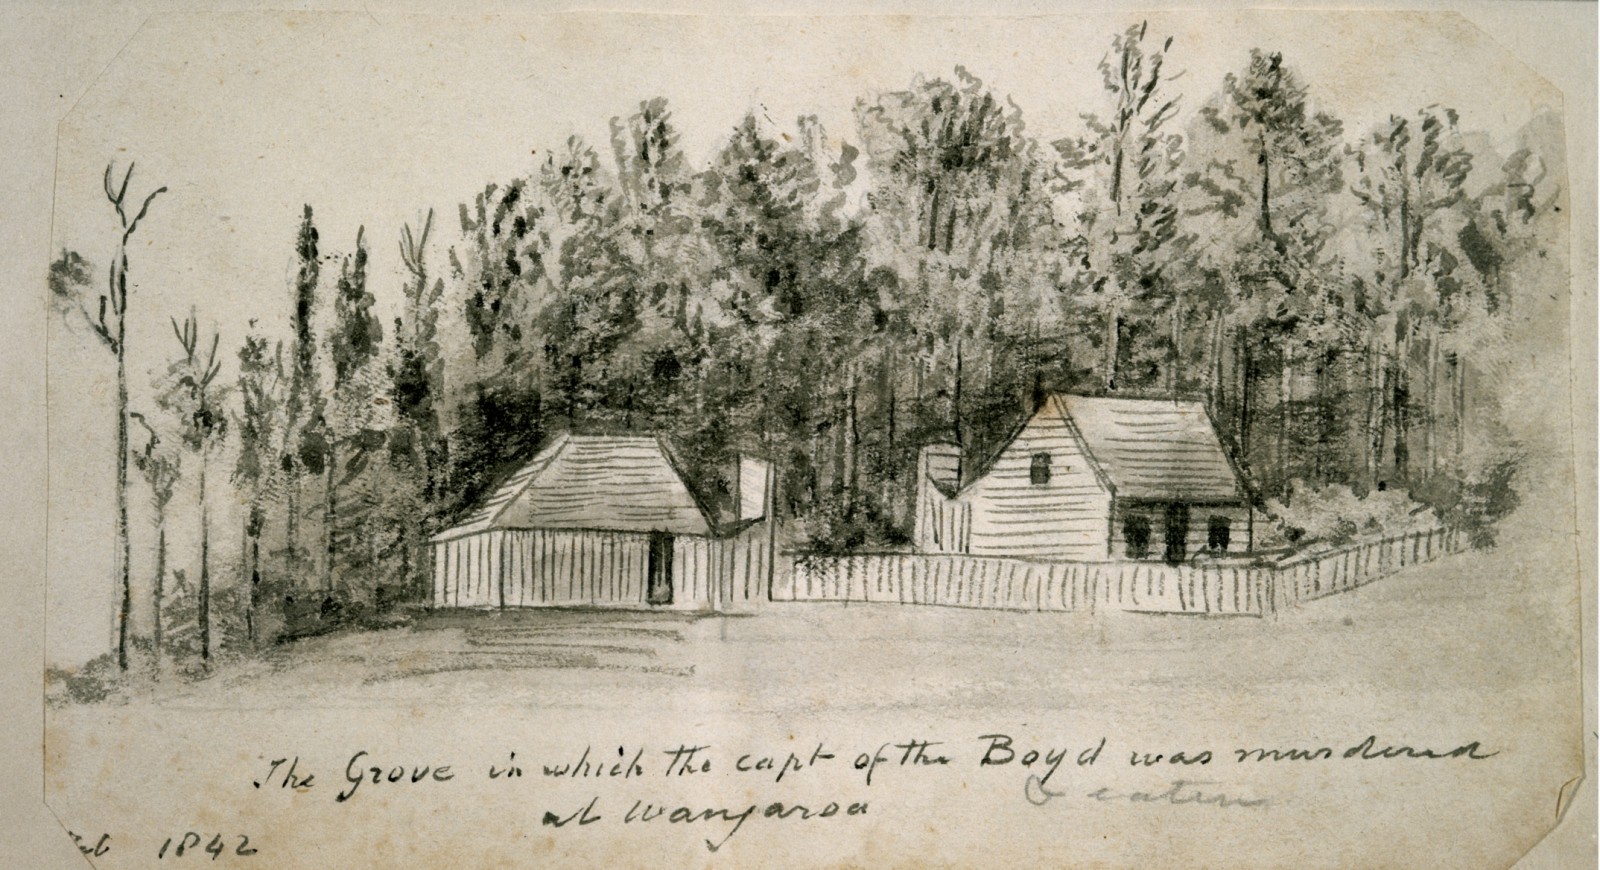 The Grove in which the capt of the Boyd was murdered
& eaten
at Wangaroa
1842